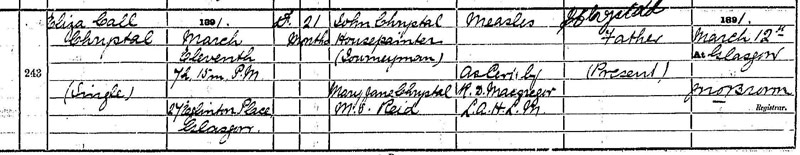 Eliza Call Chrystal
(Single)
243
1891.
March
Eleventh
7h. 15m. P.M.
27 Eglinton Place,
Glasgow.
F. 21
Months
John Chrystal
Housepainter
(Journeyman)
Mary Jane Chrystal
M.S. Reid
Measles
As Cert by
R. D. Macgregor
L.A.H.L.M.
J Chrystal
Father
(Present)
1891.
March 12th
At Glasgow
Jno Brown
Registrar.